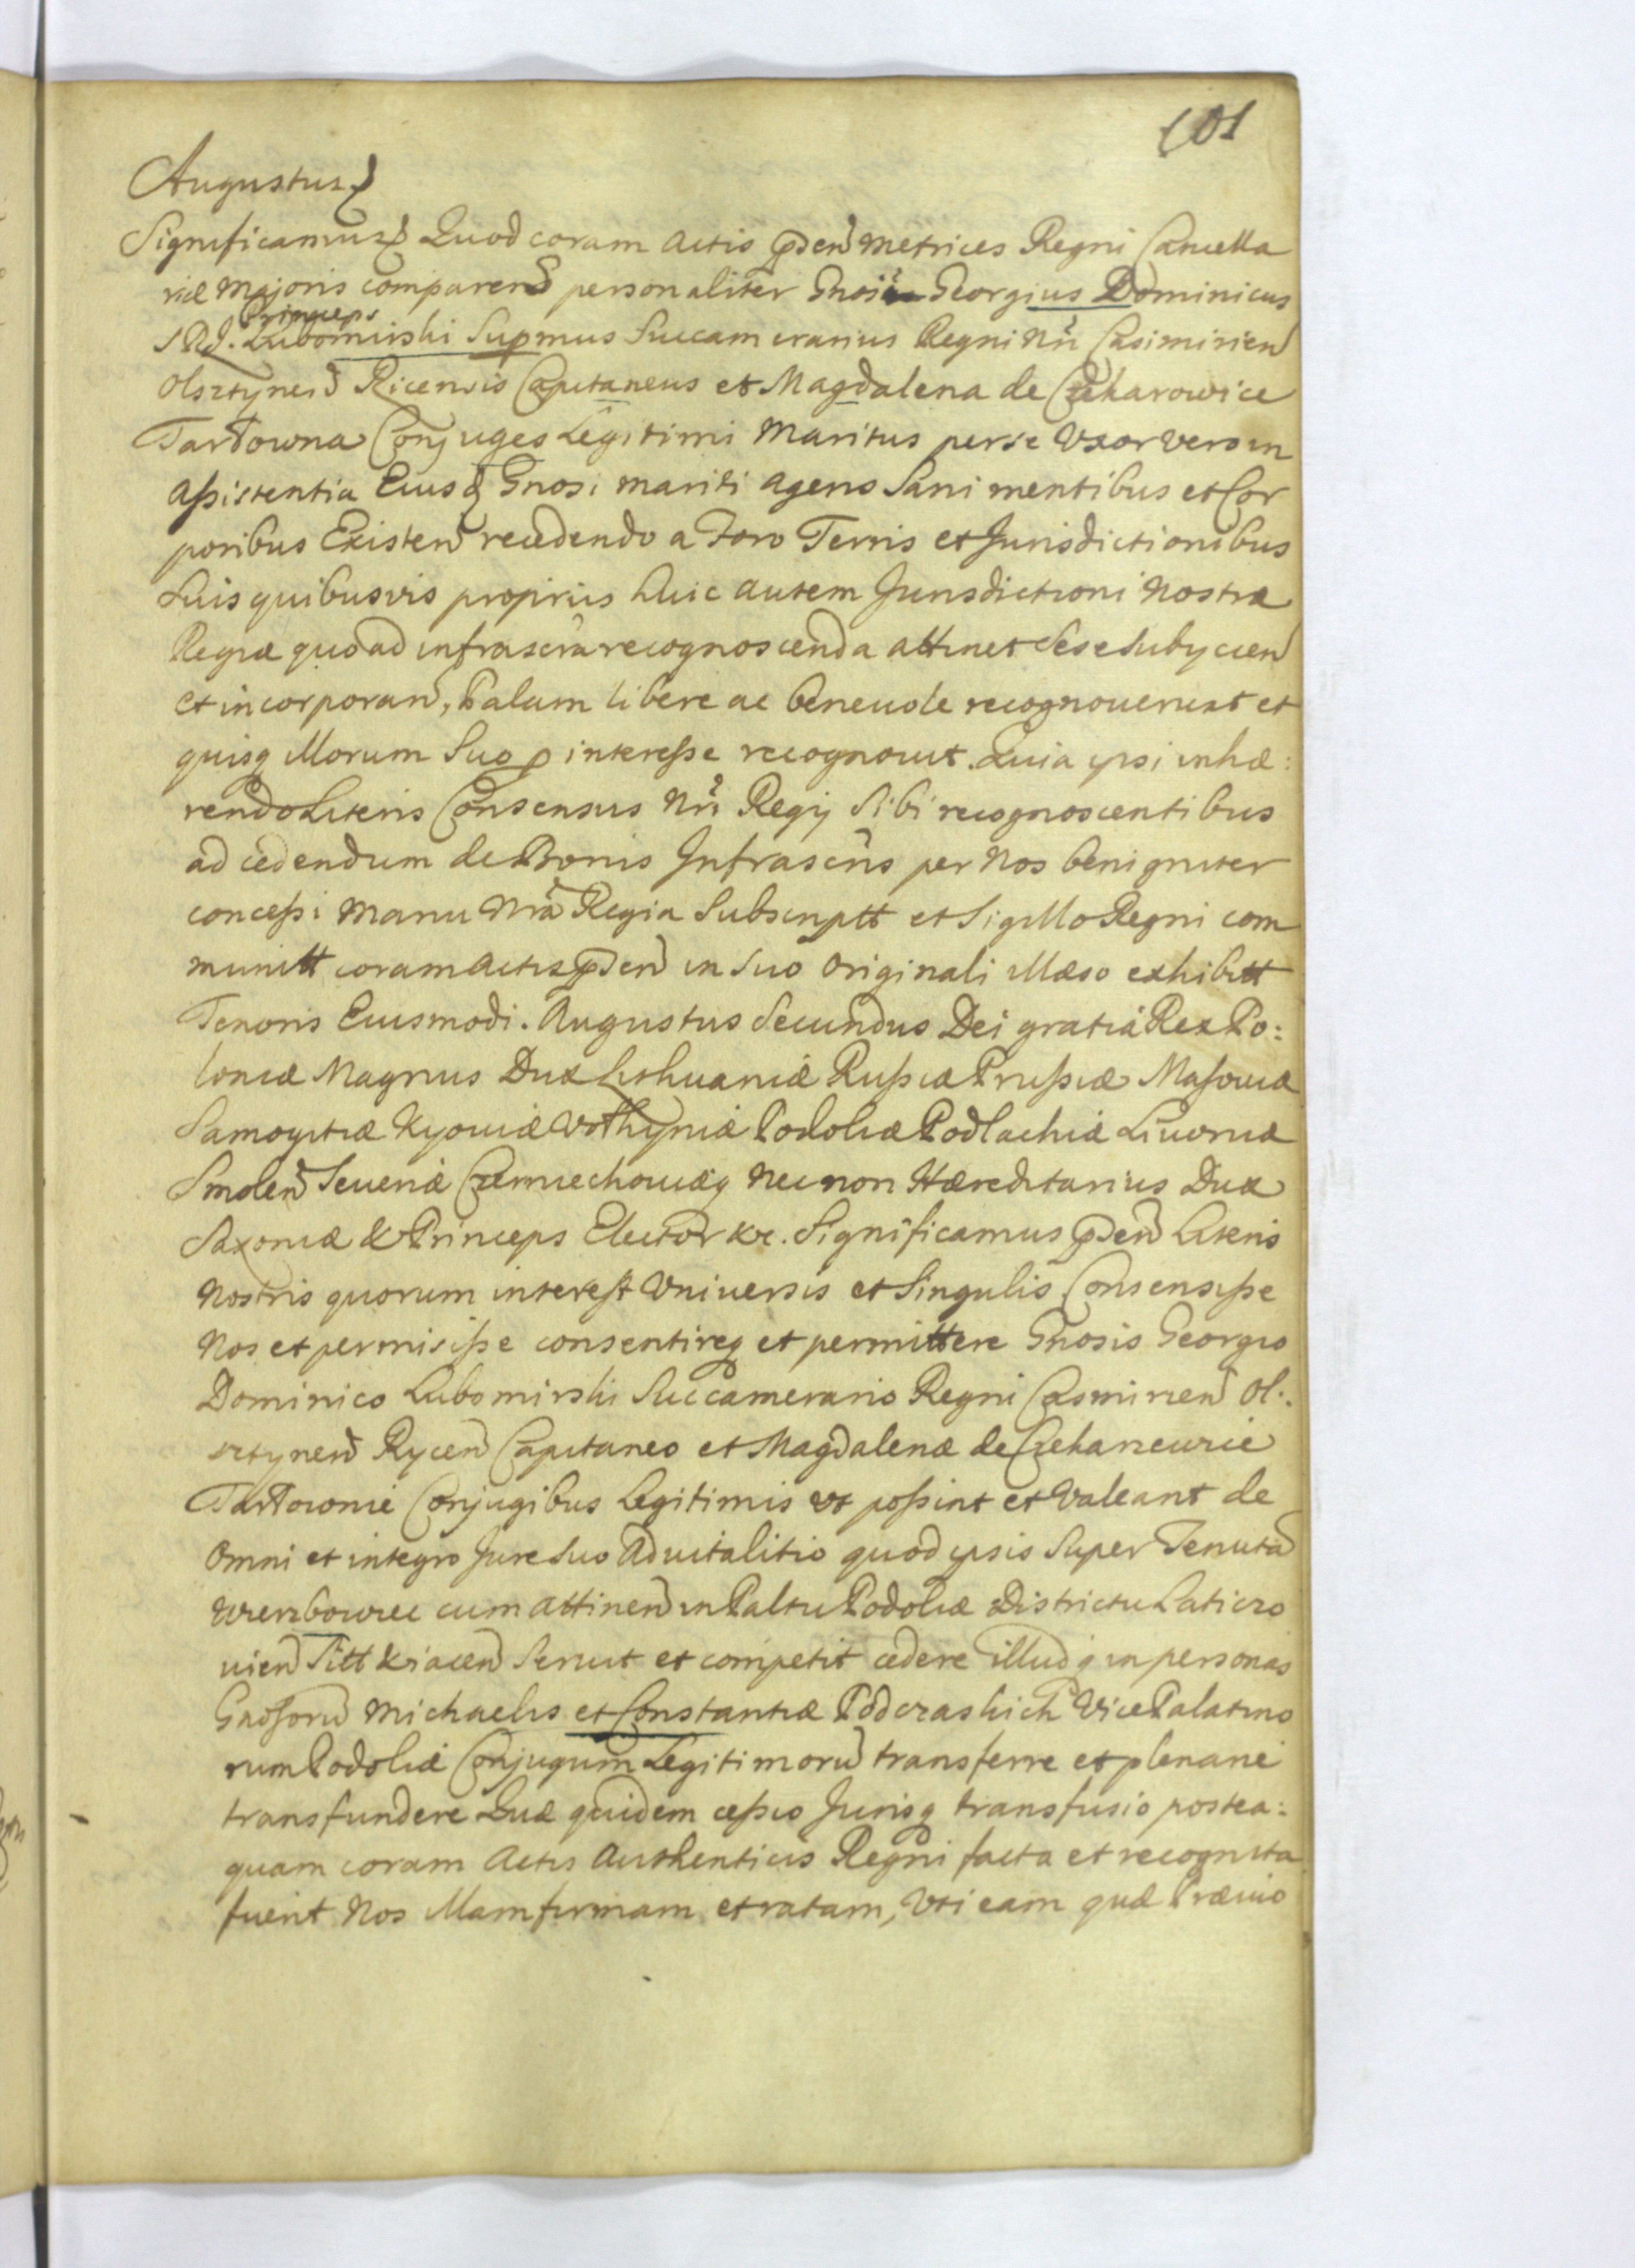 101
Augustus &
Significamus & Quod coram Actis pñden Metrices Regni Cancella
riæ Majoris comparens personaliter Gnosus Georgius Dominicus
Princeps
S.R.J. Lubomirski Supmus Succamerarius Regni Nři Casimirien
Olsztynen Ricensis Capitaneus et Magdalena de
Tarłowna Conjuges Legitimi Maritus per se Uxor vero in
Assistentia Eiusd Gnosi mariti agens Sani mentibus et Cor
poribus Existen recedendo a Foro Terris et Jurisdictionibus
Suis quibusvis proprius huic autem Jurisdictioni Nostræ
Regiæ quoad infrascřa recognoscenda attinet sese subijcien
et incorporan, Palam libere ac beneuole recognouerunt et
quisq Illorum Suo p interesse recognouit. Quia ipsi inhæ:
rendo Literis Consensus Nři Regij Sibi recognoscentibus
ad cedendum de Bonis Infrascřis per Nos benigniter
concessi Manu Nřa Regia Subscriptt et Sigillo Regni com
munitt coram Actis pñden in suo Originali Illæso exhibitt
Tenoris Eiusmodi. Augustus Secundus Dei gratiâ Rex Po:
loniæ Magnus Dux Lithuaniæ Russiæ Prussiæ Masouiæ
Samogitiæ Kyouiæ Volhyniæ Podoliæ Podlachiæ Liuoniæ
Smolen Seueriæ Czerniechouiæq necnon Hæreditarius Dux
Saxoniæ & Princeps Elector &c. Significamus pñden Literis
Nostris quorum interest Vniuersis et Singulis Consensisse
Nos et permisisse consentireq et permittere Gnosis Georgio
Dominico Lubomirski Succamerario Regni Casimirien Ol:
sztynen Rycen Capitaneo et Magdalenæ de
Conjugibus Legitimis ut possint et Valeant de
Omni et integro Jure suo Aduitalitio quod ipsis super Tenuta
Wierzbowiec cum attinen in Paltu Podoliæ Districtu Laticzo
uien Sitt & jacen seruit et competit cedere illudq in personas
Gnosoru Michaelis et Constantiæ Podczaskich Vice Palatino
rum Podoliæ Conjugum Legitimoru transferre et plenarie
transfundere Quæ quidem cessio Jurisq transfusio postea:
quam coram Actis Authenticis Regni facta et recognita
fuerit Nos Illam firmam et ratam, Vti eam quæ Præuio